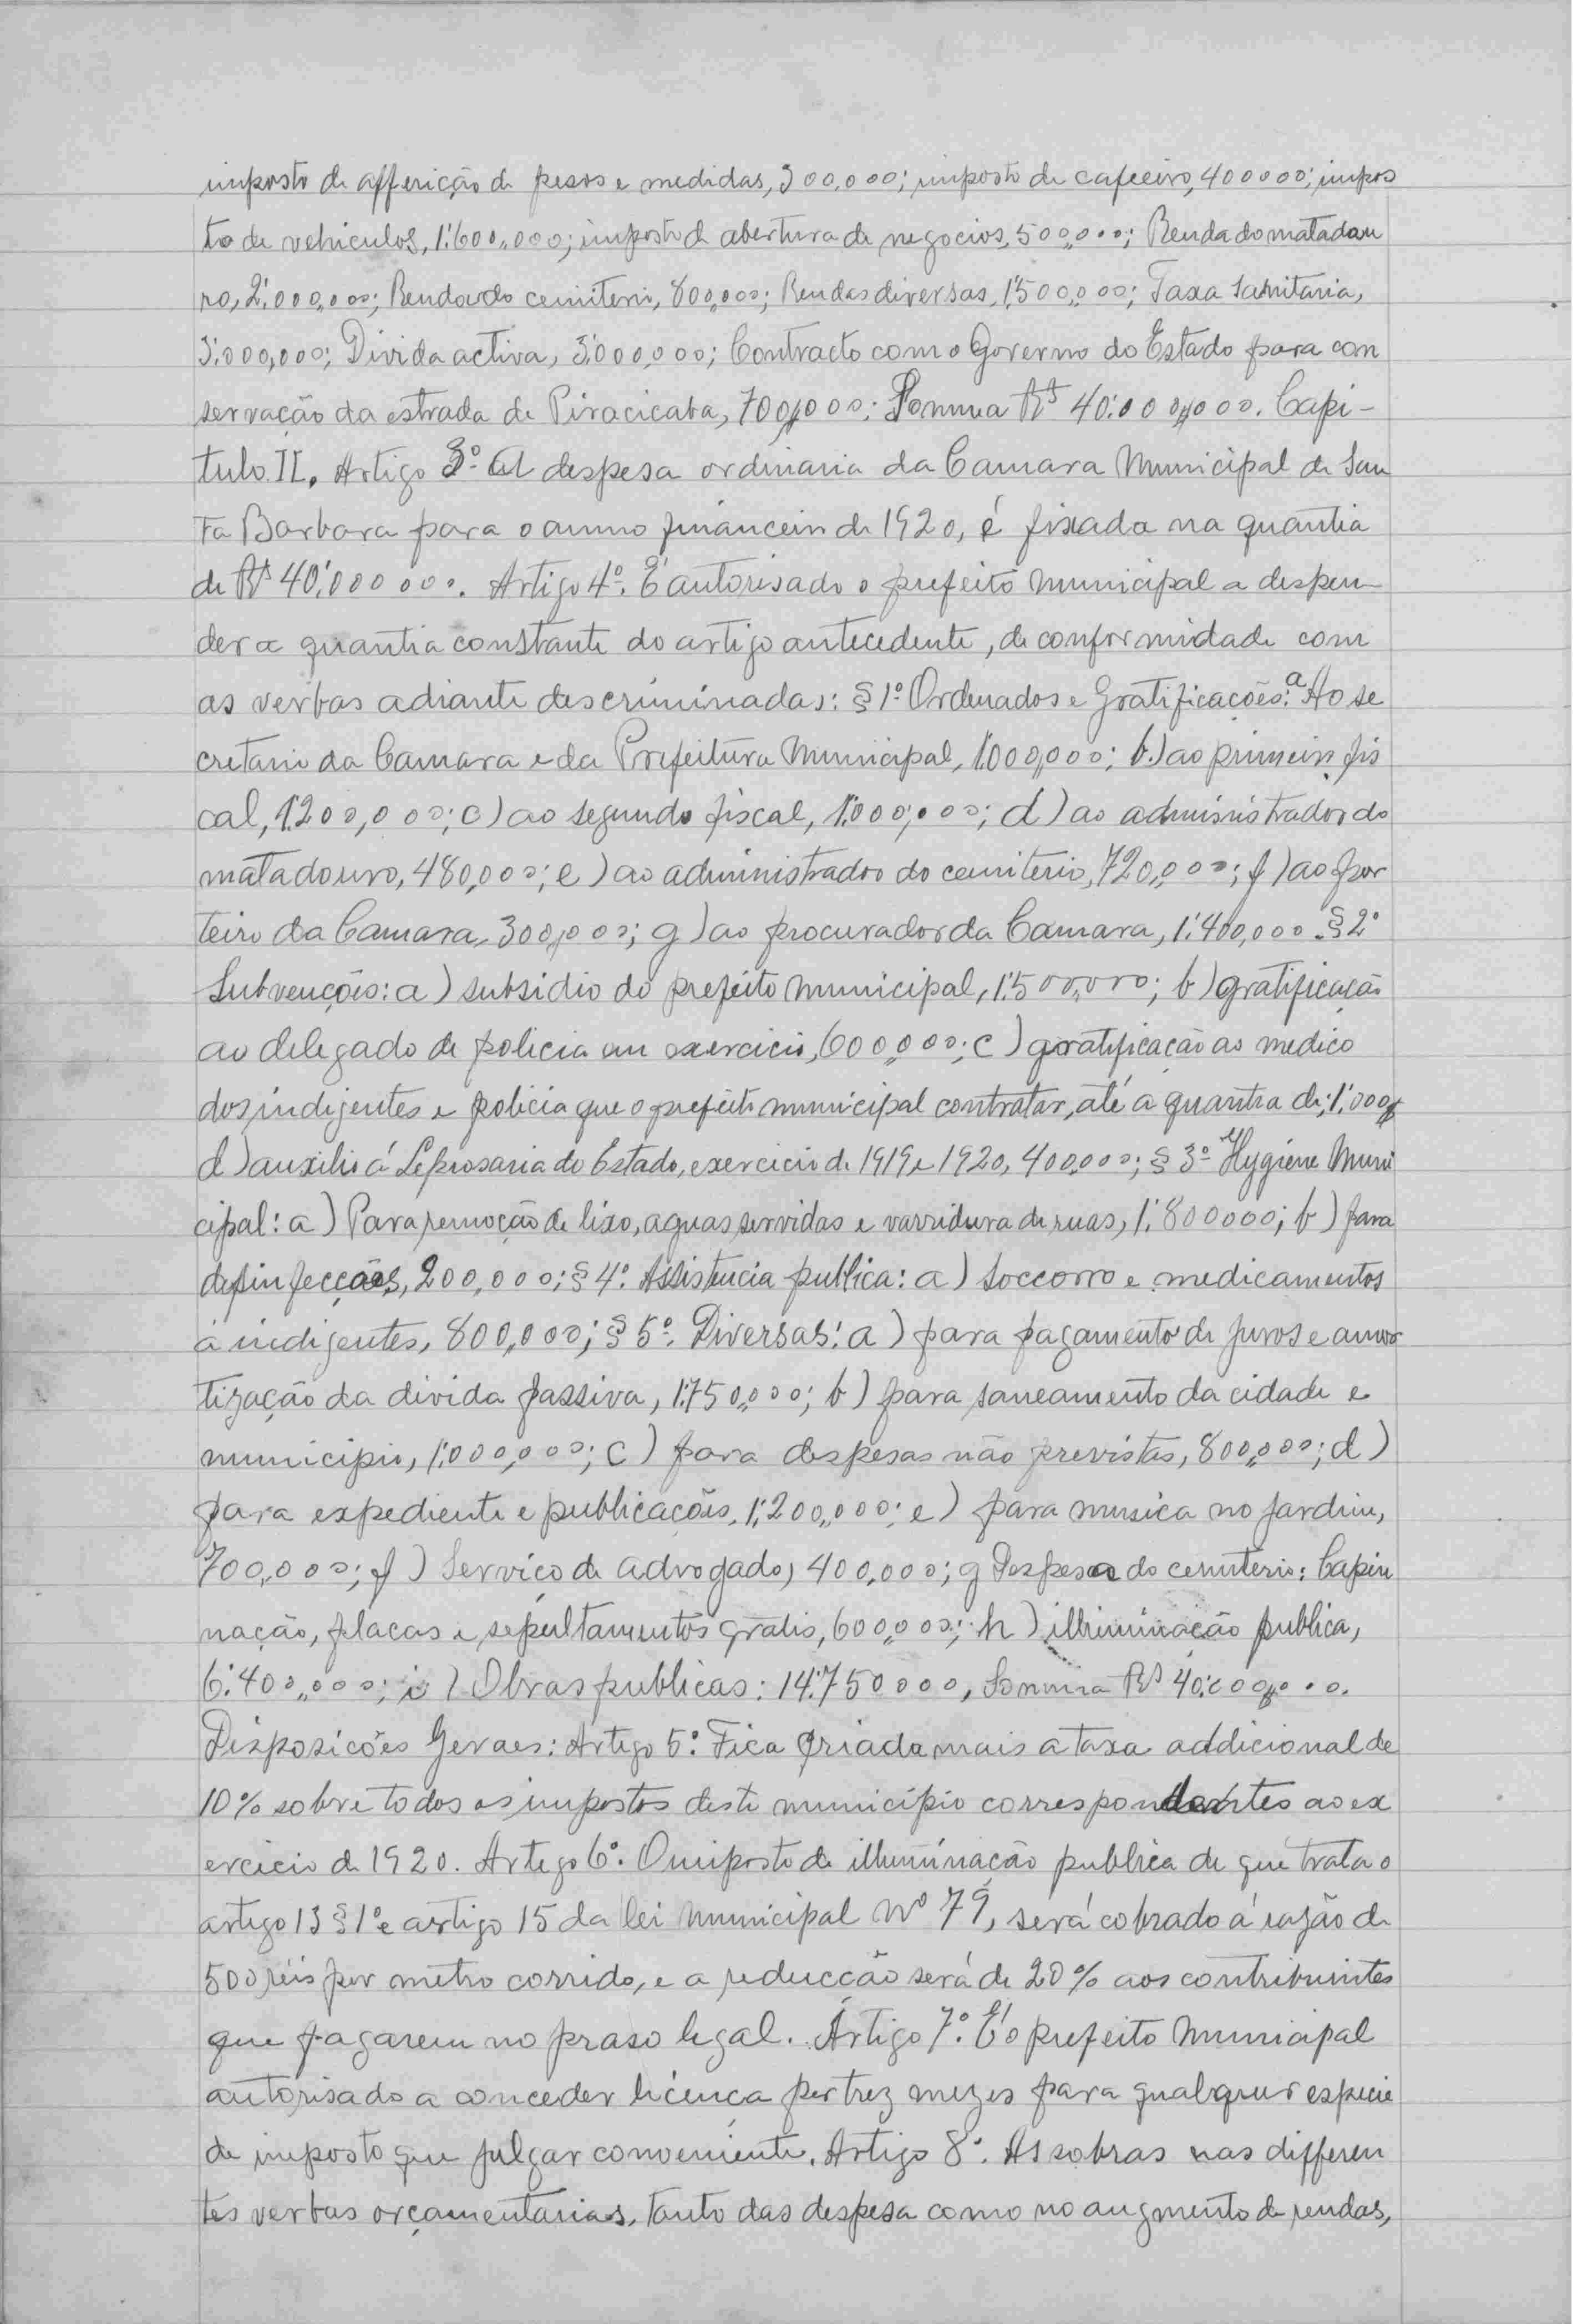 imposto de afferição de pesos e medidas, 300,000; imposto de cafeeiro, 400000; impos
to de vehiculos, 1:600,,000; imposto de abertura de negocios, 500,,000; Renda do matadou
ro, 2:000,,000; Renda do cemiterio, 800,,000; Rendas diversas, 1:500,,000; Taxa Sanitaria,
3:000,000; Divida activa, 3:000,000; Contracto com o Governo do Estado para con
servação da estrada de Piracicaba, 700,000; Somma Rs 40:000,000. Capi-
tulo II. Artigo 3º A despesa ordinaria da Camara Municipal de San
ta Barbara para o anno financeiro de 1920, é fixada na quantia
de Rs 40:000000. Artigo 4º. É autorisado o prefeito Municipal a despen-
der a quantia constante do artigo antecedente, de conformidade com
as verbas adiante descriminadas: § 1º Ordenados e Gratificações: a Ao se
cretario da Camara e da Prefeitura Municipal, 1:000,000; b) ao primeiro fis
cal, 1:200,000; c) ao segundo fiscal, 1:000,000; d) ao administrador do
matadouro, 480,000; e) ao administrador do cemiterio, 720,,000; f) ao por
teiro da Camara, 300,000; g) ao procurador da Camara, 1:400,000. § 2º
Subvenções: a) subsidio do prefeito Municipal, 1:500,,000; b) gratificação
ao delegado de policia em exercicio, 600,000; c) gratificação ao medico
dos indigentes e policia que o prefeito municipal contratar, até a quantia de; 1:000
d) auxilio á Leprosaria do Estado, exercicio de 1919 e 1920, 400,000; § 3º Hygiene Muni
cipal: a) Para remoção de lixo, aguas servidas e varridura de ruas, 1:800000; b) para
desinfecções, 200,000; § 4º. Assistencia publica: a) soccorro e medicamentos
á indigentes, 800,000; § 5º. Diversas: a) para pagamento de juros e amor
tização da divida passiva, 1:750,,000; b) para saneamento da cidade e
municipio, 1:000,000; c) para despesas não previstas, 800,,000; d)
para expediente e publicações, 1:200,,000; e) para musica no jardim,
700,000; f) Serviço de advogado, 400,000; g Despesa do cemiterio: Capin
nação, placas e sepultamentos gratis, 600,000; h) illuminação publica,
6:400,,000; i) Obras publicas: 14:750000, Somma Rs 40:000,000.
Disposicões Geraes: Artigo 5º. Fica criada mais a taxa addicional de
10% sobre todos os impostos deste municipio correspondentes ao ex
ercicio de 1920. Artigo 6º. O imposto de illuminação publica de que trata o
artigo 13 § 1º e artigo 15 da lei Municipal Nº 79, será cobrado á razão de
500 réis por metro corrido, e a reducção será de 20% aos contribuintes
que pagarem no praso legal. Artigo 7º. É o prefeito Municipal
autorisado a conceder licença por trez mezes para qualquer especie
de imposto que julgar conveniente. Artigo 8º. As sobras nas differen
tes verbas orçamentarias, tanto das despesa como no augmento de rendas,